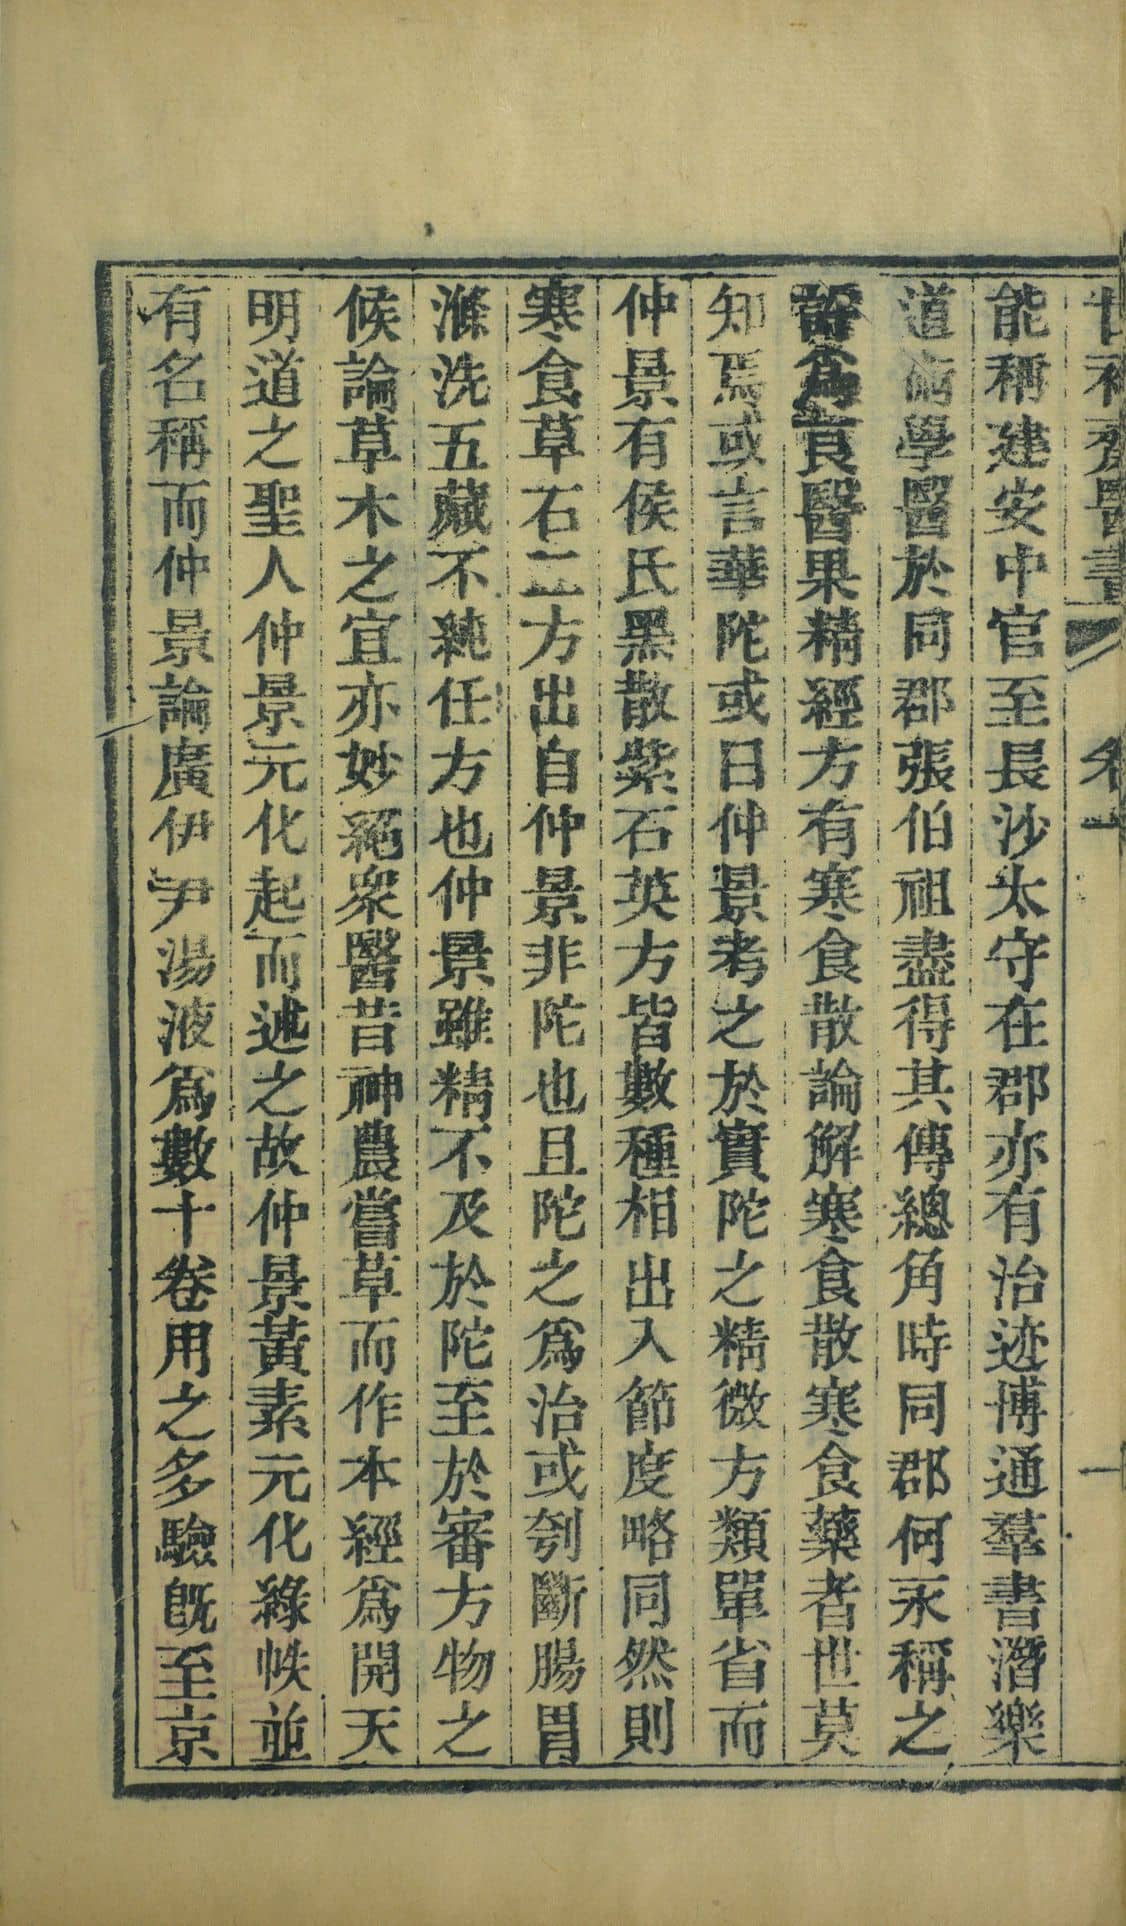 世補齋醫書 卷一 一
能稱建安中官至長沙太守在郡亦有治迹博通羣書潛樂
道術學醫於同郡張伯祖盡得其傳總角時同郡何永稱之
許爲良醫果精經方有寒食散論解寒食散寒食藥者世莫
知焉或言華陀或曰仲景考之於實陀之精微方類單省而
仲景有侯氏黑散紫石英方皆數種相出入節度略同然則
寒食草石二方出自仲景非陀也且陀之爲治或刳斷腸胃
滌洗五藏不純任方也仲景雖精不及於陀至於審方物之
候論草木之宜亦妙絕衆醫昔神農嘗草而作本經爲開天
明道之聖人仲景元化起而述之故仲景黃素元化綠帙並
有名稱而仲景論廣伊尹湯液爲數十卷用之多驗旣至京